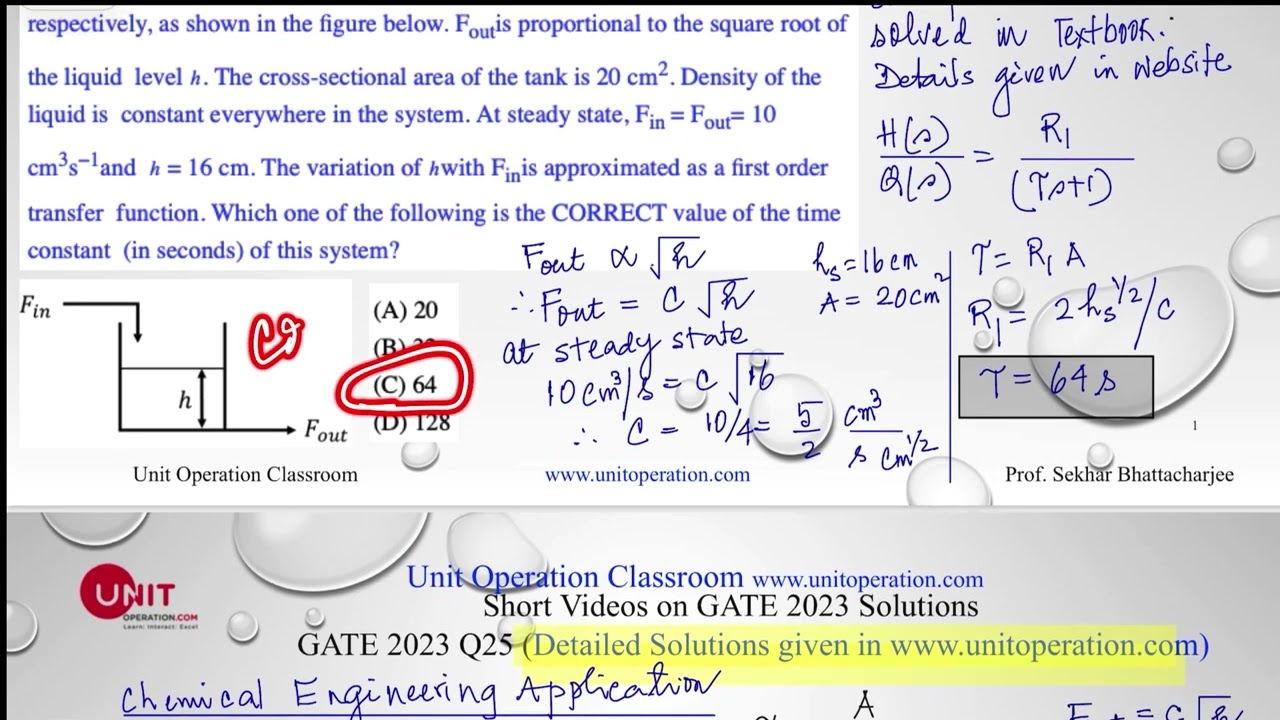 respectively, as shown in the figure below. Foutis proportional to the square root of
the liquid level h. The cross-sectional area of the tank is 20 cm². Density of the
liquid is constant everywhere in the system. At steady state, Fin = Fout= 10
cm³s⁻¹and h = 16 cm. The variation of hwith Finis approximated as a first order
transfer function. Which one of the following is the CORRECT value of the time
constant (in seconds) of this system?
solved in Textbook.
Details given in website
H(s)/Q(s) = R₁/(τs+1)
Fin
h
Fout
(A) 20
(B)
(C) 64
(D) 128
Fout ∝ √h
∴ Fout = C √h
at steady state
10cm³/s = C √16
∴ C = 10/4 = 5/2 cm³/s cm^1/2
hs = 16cm
A = 20cm²
τ = R₁ A
R₁ = 2hs^1/2/C
τ = 64 s
1
Unit Operation Classroom
www.unitoperation.com
Prof. Sekhar Bhattacharjee
UNIT
OPERATION.COM
Learn: Interact: Excel
Unit Operation Classroom www.unitoperation.com
Short Videos on GATE 2023 Solutions
GATE 2023 Q25 (Detailed Solutions given in www.unitoperation.com)
Chemical Engineering Application
A